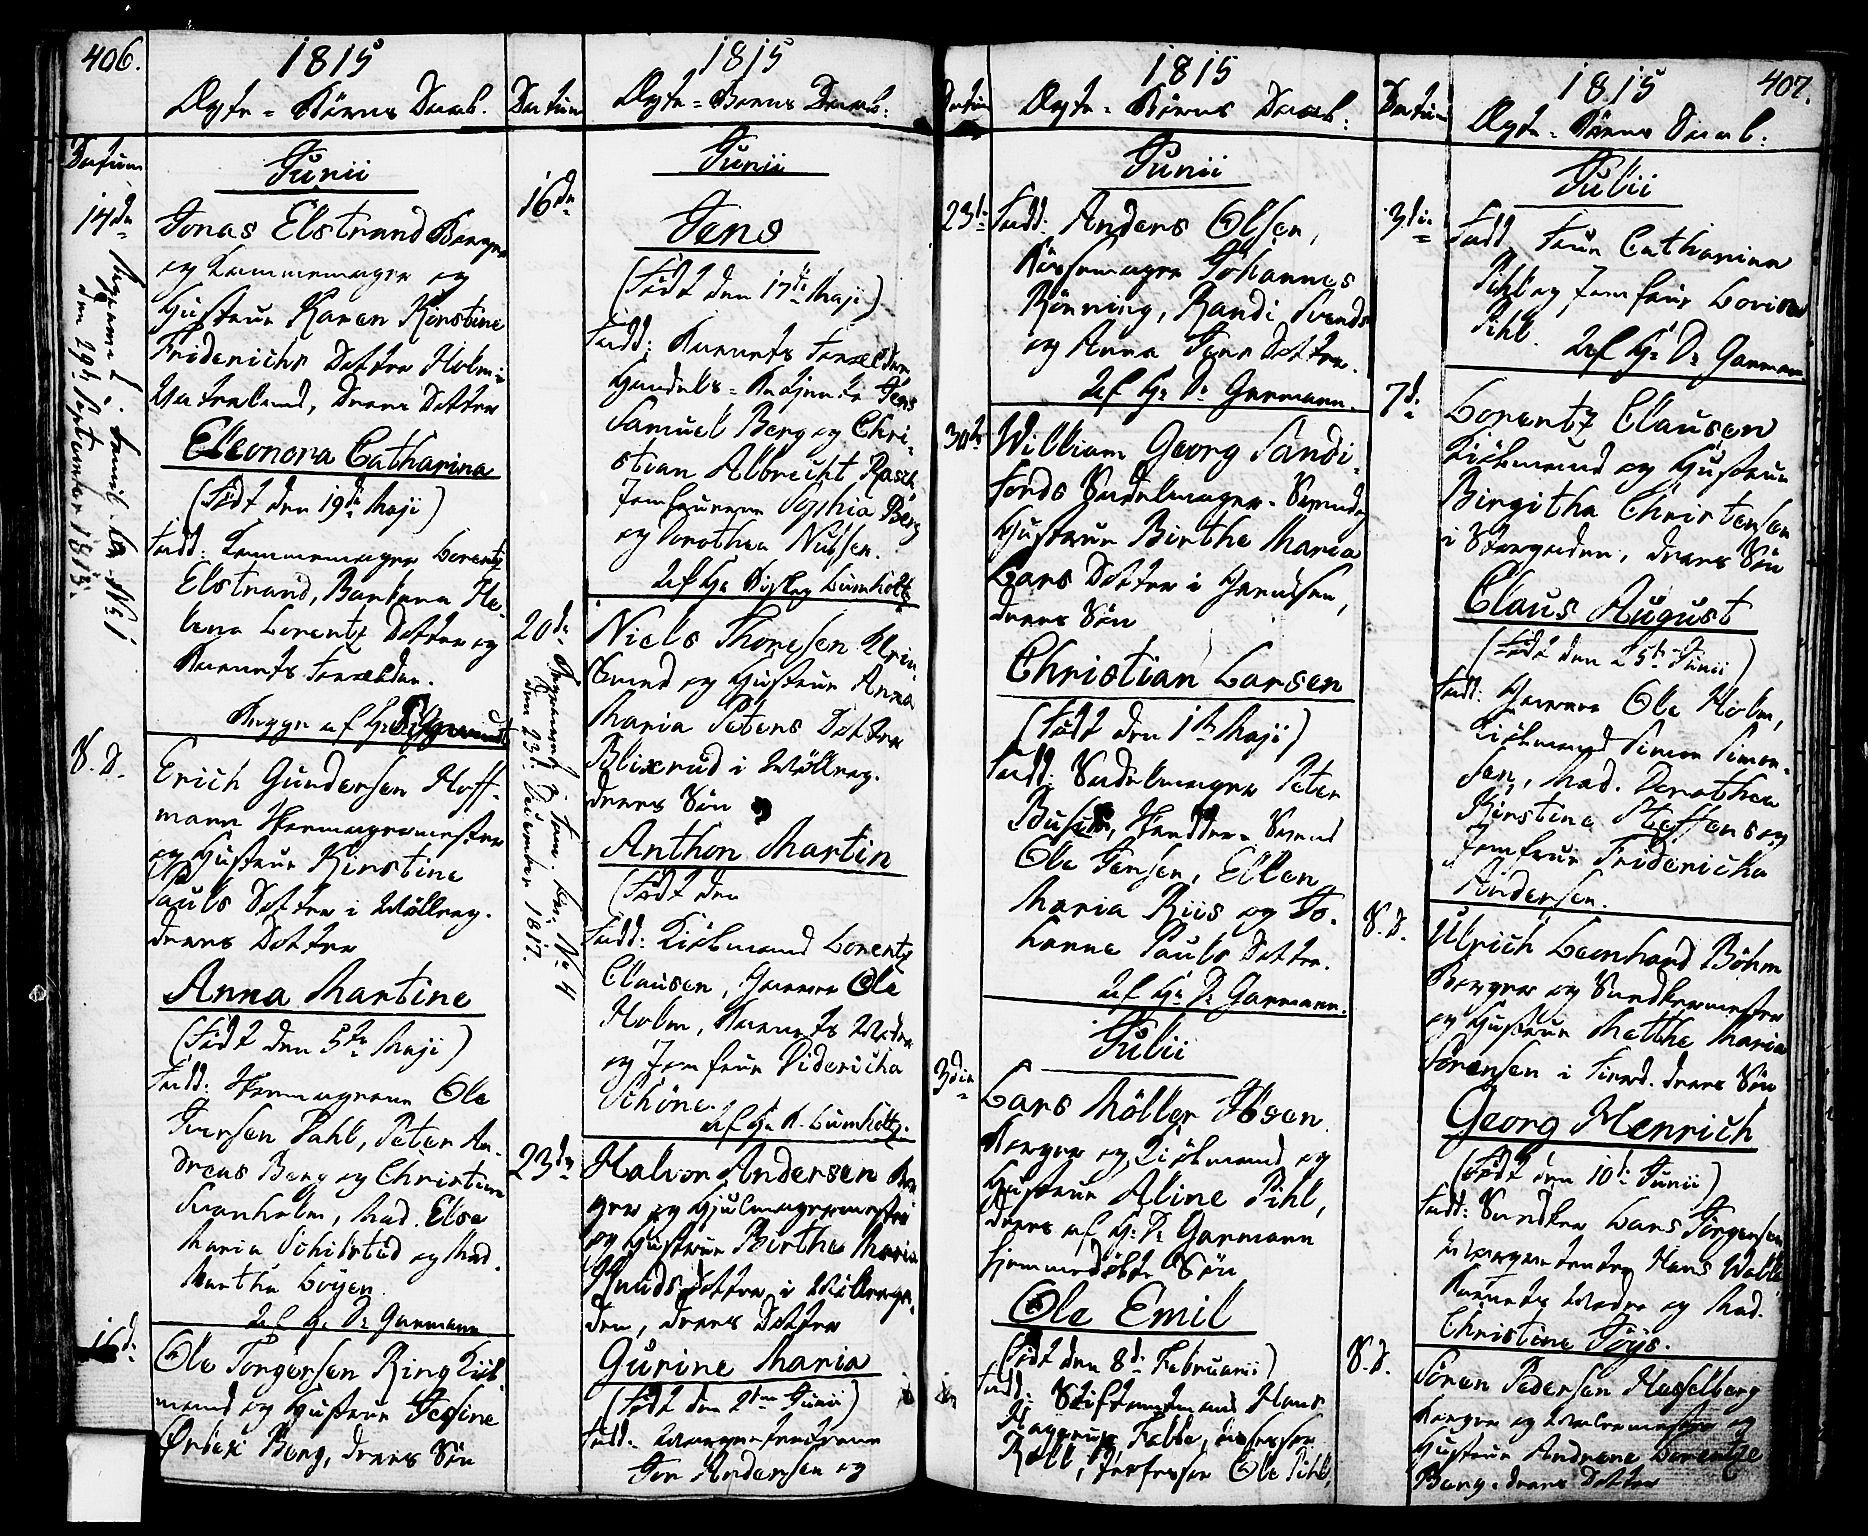 406.
1815
Ægte-Börns Daab.
Datum
Junii
14de
Jonas Elstrand Borger
og Kammemager og
Hustrue Karen Kirstine
Friderichs Datter Holm i
deres Datter
Eleonora Catharina
(Födt den 19de Maji)
Fadd: Kammemager Lorentz
Elstrand, Barbara He-
lena Lorentz Datter og
Barnets Forældre.
den 29de September 1815.
S. D.
Erich Gundersen Hoff-
mann Skomagermester
og Hustrue Kirstine
Pauls Datter i Möllerg.
deres Datter
Anna Martine
(Födt den 5te Maji)
Fadd: Skomagerne Ole
Iversen Dahl, Peter An-
dreas Berg og Christian
Svanholm, Mad. Elsa
Maria Schibsted og Mad.
Marthe Böyen.
af Hr. Dr Garmann
16de
Ole Torgersen Ring Kiöb-
mand og Hustrue Jesine
Örbek Berg, deres Sön
1815
Ægte-Börns Daab.
Datum
Junii
16de
Jens
(Födt den 17de Maji)
Fadd: Barnets Forældre
Handels-Betjente Jens
Samuel Berg og Chri-
stian Albrecht Rasch
Jomfruerne Sophia Berg
og Dorothea Nielsen.
af Hr Biskop Lumholtz
20de
Niels Thoresen
Svend og Hustrue Anna
Maria Peters Datter
Blixrud i Möllerg.
deres Sön
Anthon Martin
(Födt den
Fadd: Kiöbmand Lorentz
Clausen, Garver Ole
Holm, Barnets Moder
og Jomfrue Didericha
Schöne.
af Hr B. Lumholtz.
den 23de December 1817.
23de
Halvor Andersen Bor-
ger og Hjulmagermester
og Hustrue Birthe Maria
Knuds Datter i Möllerga-
den, deres Datter
Gurine Maria
(Födt den 2den Junii)
Fadd:
Jon Andersen og
1815
Ægte-Börns Daab.
Datum
Junii
23de
Fadd: Anders Olsen,
Kössemager Johannes
Rönning, Randi Svends
og Anna Jens Datter.
af Hr Dr Garmann.
30te
William Georg Sandi-
fords Sadelmager-Svend og
Hustrue Birthe Maria
Lars Datter i Grændsen,
deres Sön
Christian Larsen
(Födt den 1te Maji)
Fadd: Sadelmager Peter
Skrædder-Svend
Ole Jensen, Ellen
Maria Riis og Jo-
hanne Pauls Datter.
af Hr Dr Garmann.
Julii
3die
Lars Möller Ibsen
Borger og Kiöbmand og
Hustrue Aline Pihl,
deres af Hr Dr Garmann
hjemmedöbte Sön
Ole Emil
(Födt den 8de Februarii)
Fadd: Stiftamtmand Hans
Hagerup Falbe, Assessor
Roll, Professor Ole Pihl,
1815
407.
Ægte-Börns Daab.
Datum
Julii
3die
Fadd, Frue Catharina
Pihl og Jomfrue Lovisa
Pihl.
af Hr Dr Garmann
7de
Lorentz Clausen
Kiöbmand og Hustrue
Birgitha Christensen
i Storgaden, deres Sön
Claus August
(Födt den 25de Junii)
Fadd: Garver Ole Holm,
Kiöbmand Simon Simon-
sen, Mad. Dorothea
Kirstine Steffens og
Jomfrue Fridericha
Andersen.
S. D.
Ulrich Leonhard Böhm
Borger og Snedkermester
og Hustrue Mette Maria
Sörensen i Fierd. deres Sön
Georg Henrich
(Födt den 10de Junii)
Fadd: Snedker Lars Jörgensen
Hans Wolle
Barnets Moder og Mad.
Christine Töys.
S. D.
Sören Pedersen Hasselberg
Borger og Malermester og
Hustrue Andrene Lorentze
Berg, deres Datter